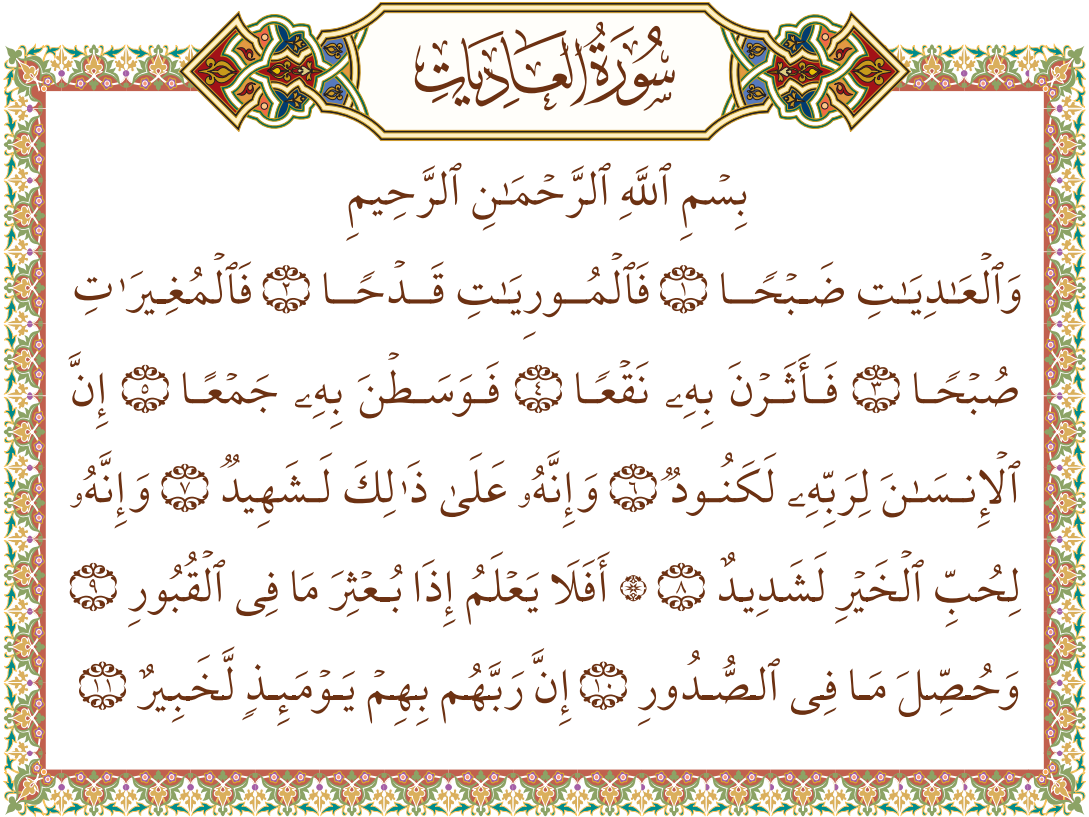 سُورَةُ العَادِيَاتِ
بِسْمِ ٱللَّهِ ٱلرَّحْمَـٰنِ ٱلرَّحِيمِ
وَٱلْعَـٰدِيَـٰتِ ضَبْحًا ١ فَٱلْمُورِيَـٰتِ قَدْحًا ٢ فَٱلْمُغِيرَٰتِ
صُبْحًا ٣ فَأَثَرْنَ بِهِۦ نَقْعًا ٤ فَوَسَطْنَ بِهِۦ جَمْعًا ٥ إِنَّ
ٱلْإِنسَـٰنَ لِرَبِّهِۦ لَكَنُودٌ ٦ وَإِنَّهُۥ عَلَىٰ ذَٰلِكَ لَشَهِيدٌ ٧ وَإِنَّهُۥ
لِحُبِّ ٱلْخَيْرِ لَشَدِيدٌ ٨ ۞ أَفَلَا يَعْلَمُ إِذَا بُعْثِرَ مَا فِى ٱلْقُبُورِ ٩
وَحُصِّلَ مَا فِى ٱلصُّدُورِ ١٠ إِنَّ رَبَّهُم بِهِمْ يَوْمَئِذٍ لَّخَبِيرٌ ١١